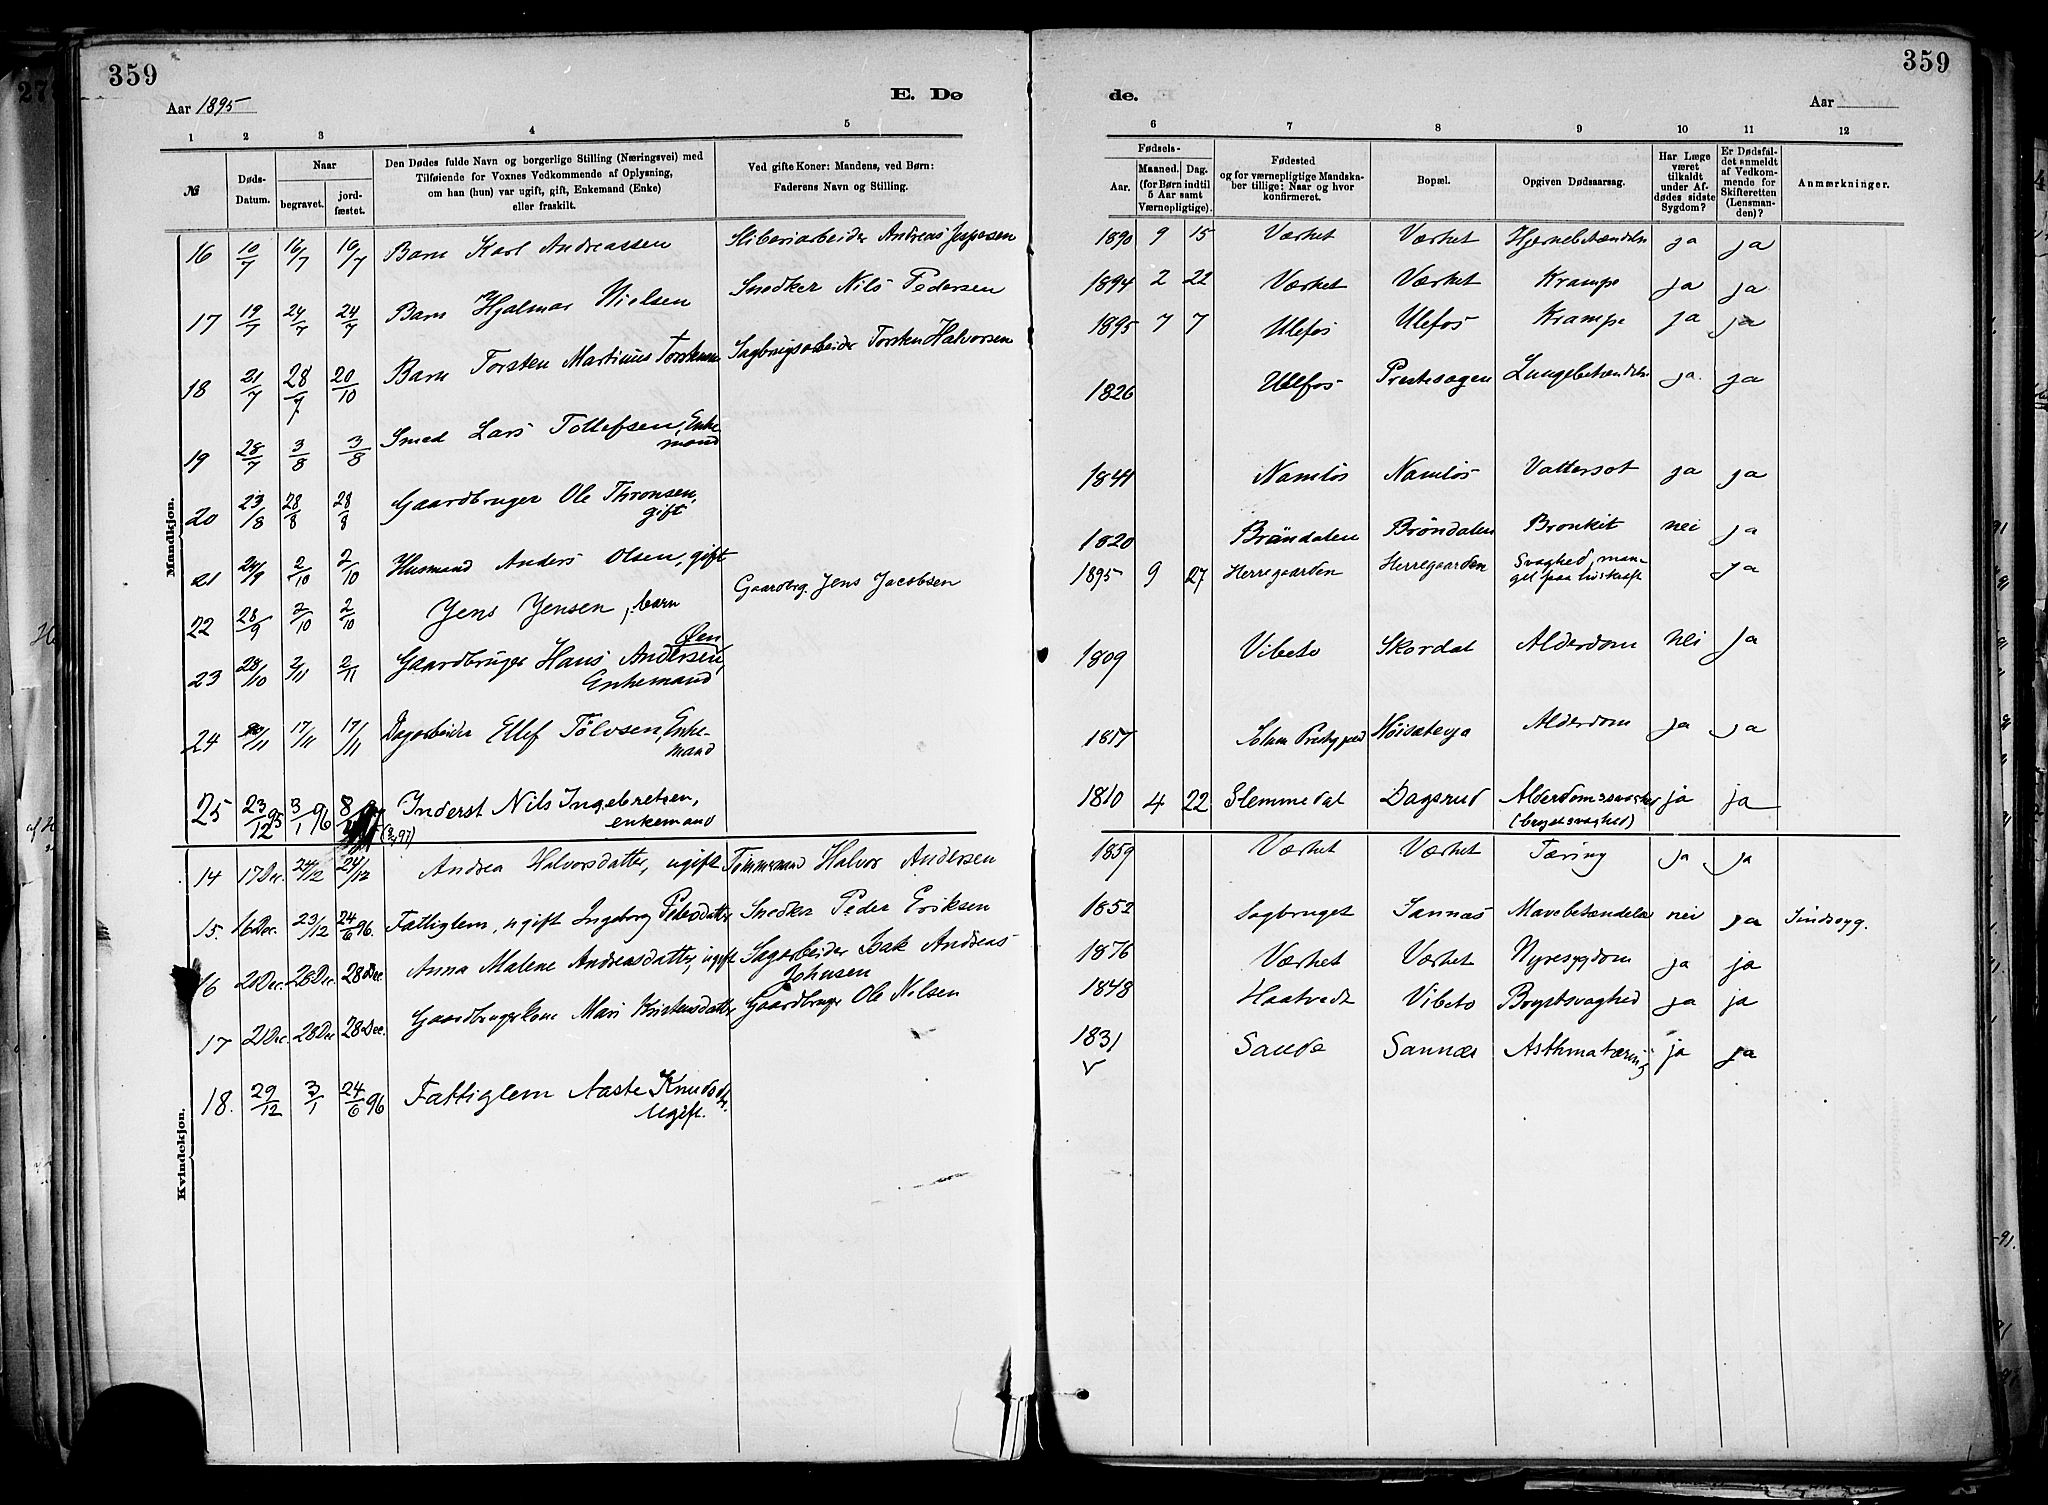 359
359
Aar 1895
E. Dø
de.
Aar
1 2 3 4 5
6 7 8 9 10 11 12
№
Døds-Datum.
Naar
begravet.
jord-fæstet.
Den Dødes fulde Navn og borgerlige Stilling (Næringsvei) med
Tilføiende for Voxnes Vedkommende af Oplysning,
om han (hun) var ugift, gift, Enkemand (Enke)
eller fraskilt.
Ved gifte Koner: Mandens, ved Børn:
Faderens Navn og Stilling.
Fødsels-
Aar.
Maaned. Dag.
(for Børn indtil
5 Aar samt
Værnepligtige).
Fødested
og for værnepligtige Mandska-
ber tillige: Naar og hvor
konfirmeret.
Bopæl.
Opgiven Dødsaarsag.
Har Læge
været
tilkaldt
under Af-
dødes sidste
Sygdom?
Er Dødsfal-
det anmeldt
af Vedkom-
mende for
Skifteretten
(Lensman-
den)?
Anmærkninger.
Mandkjøn.
16 10/7 16/7 16/7 Barn Karl Andreassen Sliberiarbeider Andreas Jespersen 1890 9 15 Værket Værket Hjernebetændelse ja ja
17 19/7 24/7 24/7 Barn Hjalmar Nielsen Snedker Nils Pedersen 1894 2 22 Værket Værket Krampe ja ja
18 21/7 28/7 20/10 Barn Torsten Martinius Torstensen Sagbrugsarbeider Torsten Halvorsen 1895 7 7 Ulefos Ulefos Krampe ja ja
19 28/7 3/8 3/8 Smed Lars Tollefsen, Enke-
mand 1826 Ulefos Prestvagen Lungebetændelse ja. ja
20 23/8 28/8 28/8 Gaardbruger Ole Thronsen,
gift 1844 Namløs Namløs Vattersot ja ja
21 24/9 2/10 2/10 Husmand Anders Olsen, gift 1820 Brøndalen Brøndalen Bronkit nei ja
22 28/9 2/10 2/10 Jens Jensen, barn Gaardbrg. Jens Jacobsen 1895 9 27 Herregaarden Herregaarden Svaghed, man-
gel paa livskraft ja
23 28/10 2/11 2/11 Gaardbruger Hans Andersen Øen
Enkemand 1809 Vibeto Skordal Alderdom nei ja
24 17/11 17/11 Dagarbeider Ellef Tølvsen, Enke-
mand 1817 Solum Prestegjeld Høisæterja Alderdom ja ja
25 23/12 95 3/1 96 (97) Inderst Nils Ingebretsen,
enkemand 1810 4 22 Slemmedal Dagsrud Alderdomssvaghed
(brystsvaghed) ja ja
Kvindekjøn.
14 17 Dec. 24/12 24/12 Andrea Halvorsdatter, ugift Tømmermand Halvor Andersen 1859 Værket Værket Tæring ja ja
15. 16 Dec. 23/12 24/6 96. Fattiglem, ugift Ingeborg Pedersdatter Snedker Peder Eriksen 1852 Sagbruget Sannæs Mavebetændelse nei ja Sindssyg.
16 20 Dec. 28 Dec 28 Dec Anna Malene Andreasdatter, ugift Sagarbeider Isak Andreas
Johnsen 1876 Værket Værket Nyresygdom ja ja
17 21 Dec. 28 Dec 28 Dec. Gaardbrugerkone Mari Kristensdatter Gaardbruger Ole Nilsen 1848 Haatvedt Vibeto Brystsvaghed ja ja
18. 29/12 3/1 24/6 96 Fattiglem Aaste Knudsdtr.
Ugift. 1831 Sande Sannæs Asthmatæring ja ja